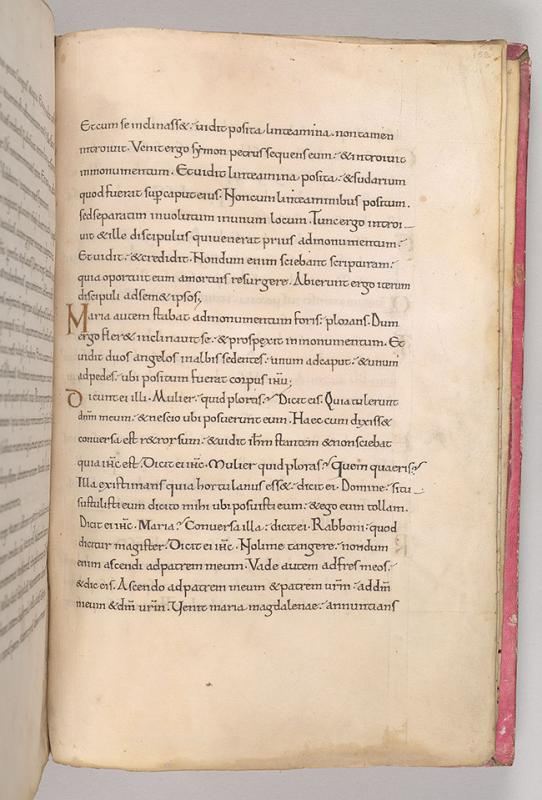 Et cum se inclinass&. uidit posita linteamina. non tamen
introiuit. Venit ergo symon petrus sequens eum. & introiuit
in monumentum. Et uidit linteamina posita. & sudarium
quod fuerat sup caput eius. Non cum linteaminibus positum.
sed separatim inuolutum in unum locum. Tunc ergo introi
uit & ille discipulus qui uenerat prius ad monumentum.
Et uidit. & credidit. Nondum enim sciebant scripturam.
quia oportuit eum a mortuis resurgere. Abierunt ergo iterum
discipuli ad sem& ipsos;
Maria autem stabat ad monumentum foris. plorans. Dum
ergo fler& inclinauit se. & prospexit in monumentum. Et
uidit duos angelos in albis sedentes. unum ad caput. & unum
ad pedes. ubi positum fuerat corpus ihu;
Dicunt ei illi. Mulier. quid ploras? Dicit eis. Quia tulerunt
dnm meum. & nescio ubi posuerunt eum. Haec cum dixiss&
conuersa est r&rorsum. & uidit ihm stantem & non sciebat
quia ihc est. Dicit ei ihc. Mulier quid ploras? Quem quaeris?
Illa existimans quia hortulanus ess&. dicit ei. Domine. si tu
sustulisti eum dicito mihi ubi posuisti eum. & ego eum tollam.
Dicit ei ihc. Maria? Conuersa illa. dicit ei. Rabboni. quod
dicitur magister. Dicit ei ihc. Noli me tangere. nondum
enim ascendi ad patrem meum. Vade autem ad fres meos.
& dic eis. Ascendo ad patrem meum & patrem urm. ad dm
meum & dm urm. Venit maria magdalenae. annuntians